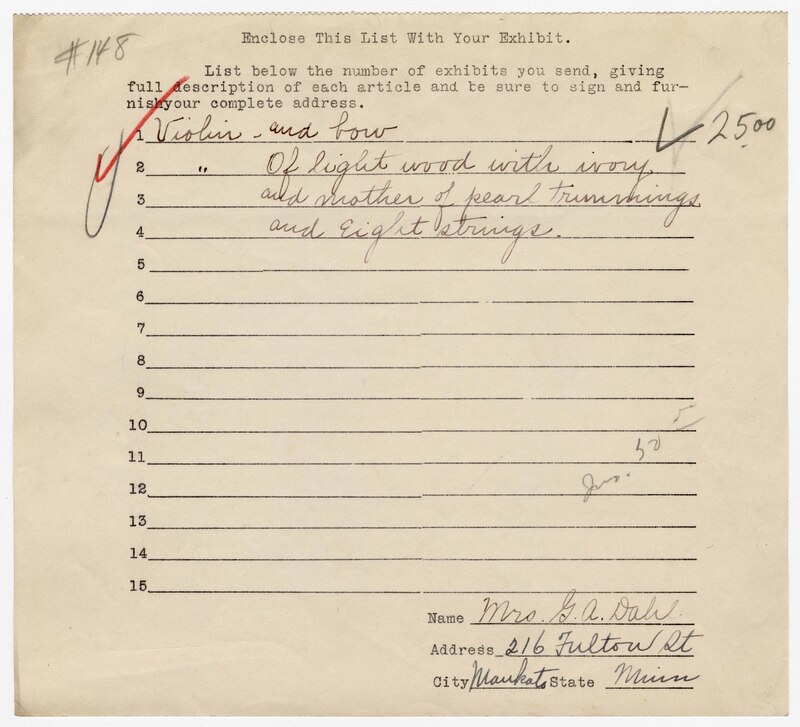 #148
Enclose This List With Your Exhibit.
List below the number of exhibits you send, giving
full description of each article and be sure to sign and fur-
nishyour complete address.
1 Violin - and bow 25.00
2 " Of light wood with ivory
3 and mother of pearl trimmings
4 and eight strings.
5
6
7
8
9
10
11
12
13
14
15
Name Mrs. G. A. Dahl
Address 216 Fulton St
City Mankato State Minn